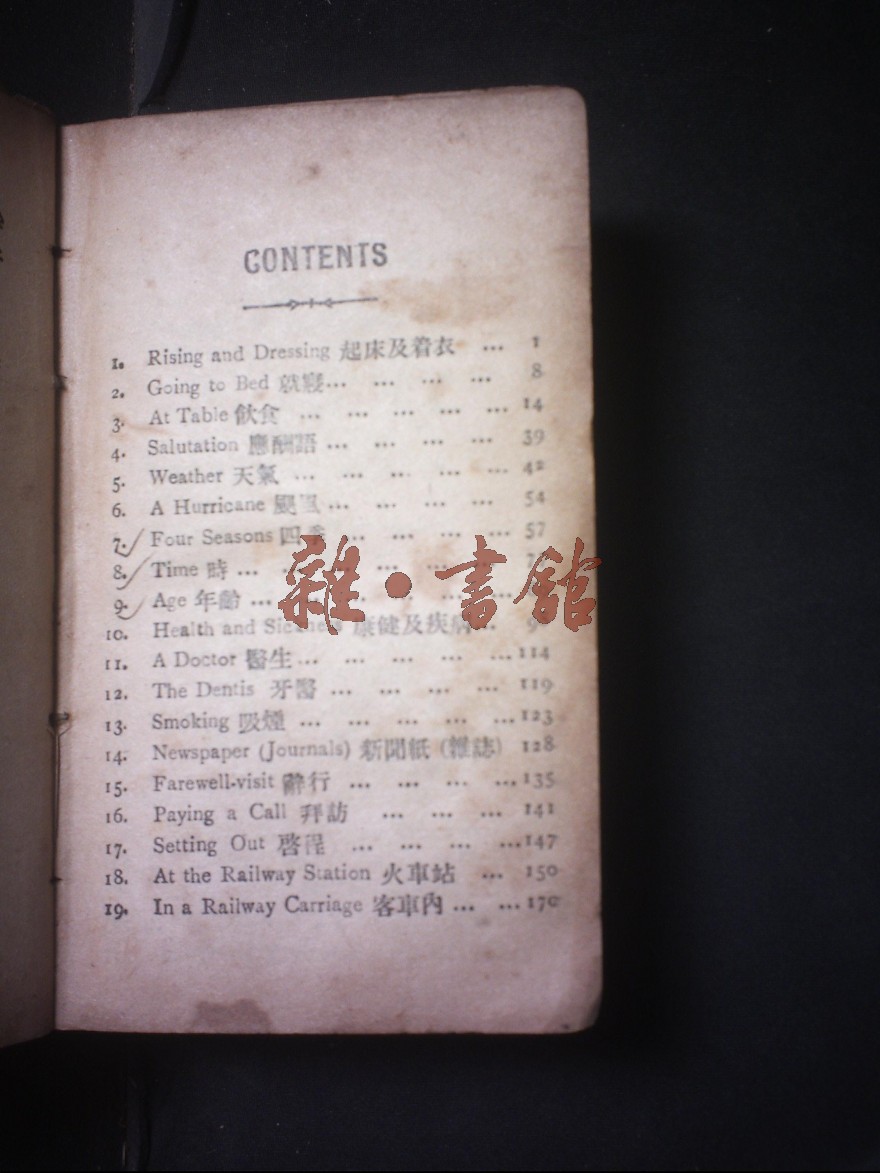 CONTENTS
1. Rising and Dressing 起床及着衣 ... 1
2. Going to Bed 就寢... ... ... ... 8
3. At Table 飲食 ... ... ... ... ... 14
4. Salutation 應酬語 ... ... ... ... 39
5. Weather 天氣 ... ... ... ... ... 42
6. A Hurricane 颶風 ... ... ... ... 54
7. Four Seasons 四季 ... ... ... ... 57
8. Time 時 ... ... ... ... ... ...
9. Age 年齡 ... ... ... ... ... ...
10. Health and Sickness 康健及疾病 ...
11. A Doctor 醫生... ... ... ... ...114
12. The Dentis 牙醫 ... ... ... ... 119
13. Smoking 吸煙 ... ... ... ... ...123
14. Newspaper (Journals) 新聞紙 (雜誌) 128
15. Farewell-visit 辭行 ... ... ... ...135
16. Paying a Call 拜訪 ... ... ... 141
17. Setting Out 啓程 ... ... ... ...147
18. At the Railway Station 火車站 ... 150
19. In a Railway Carriage 客車內 ... ...170
雜·書館